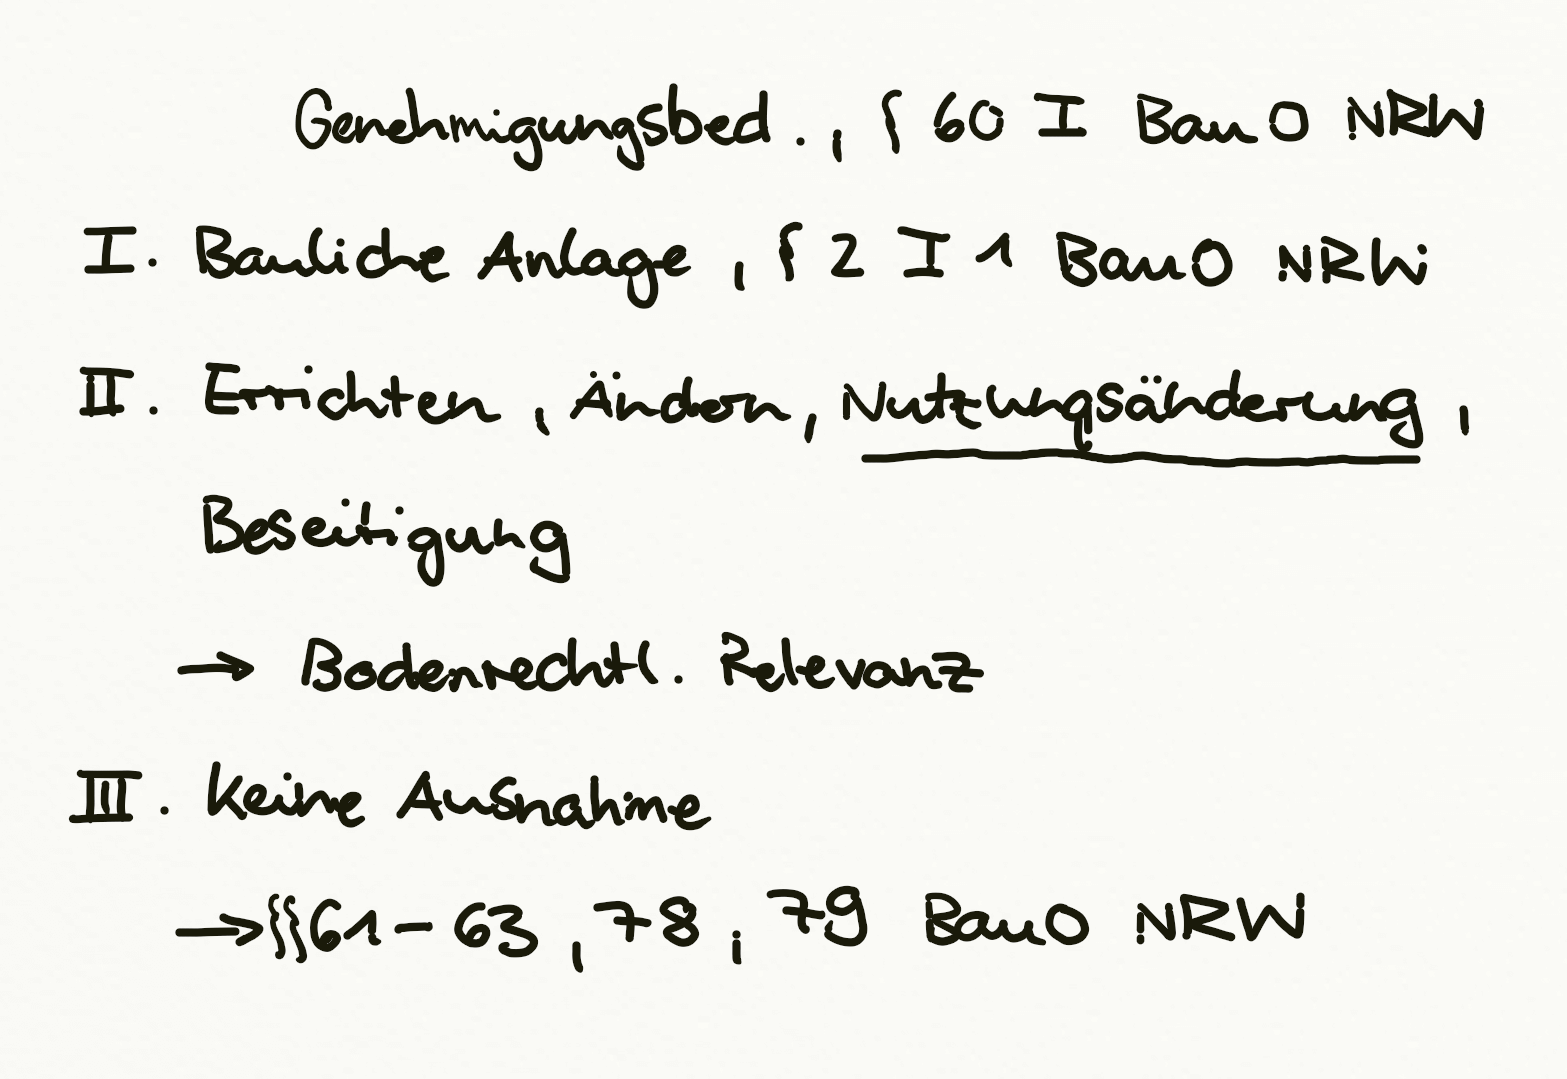 Genehmigungsbed., § 60 I BauO NRW
I. Bauliche Anlage, § 2 I 1 BauO NRW
II. Errichten, Ändern, Nutzungsänderung,
Beseitigung
→ Bodenrechtl. Relevanz
III. Keine Ausnahme
→ §§ 61 - 63, 78, 79 BauO NRW